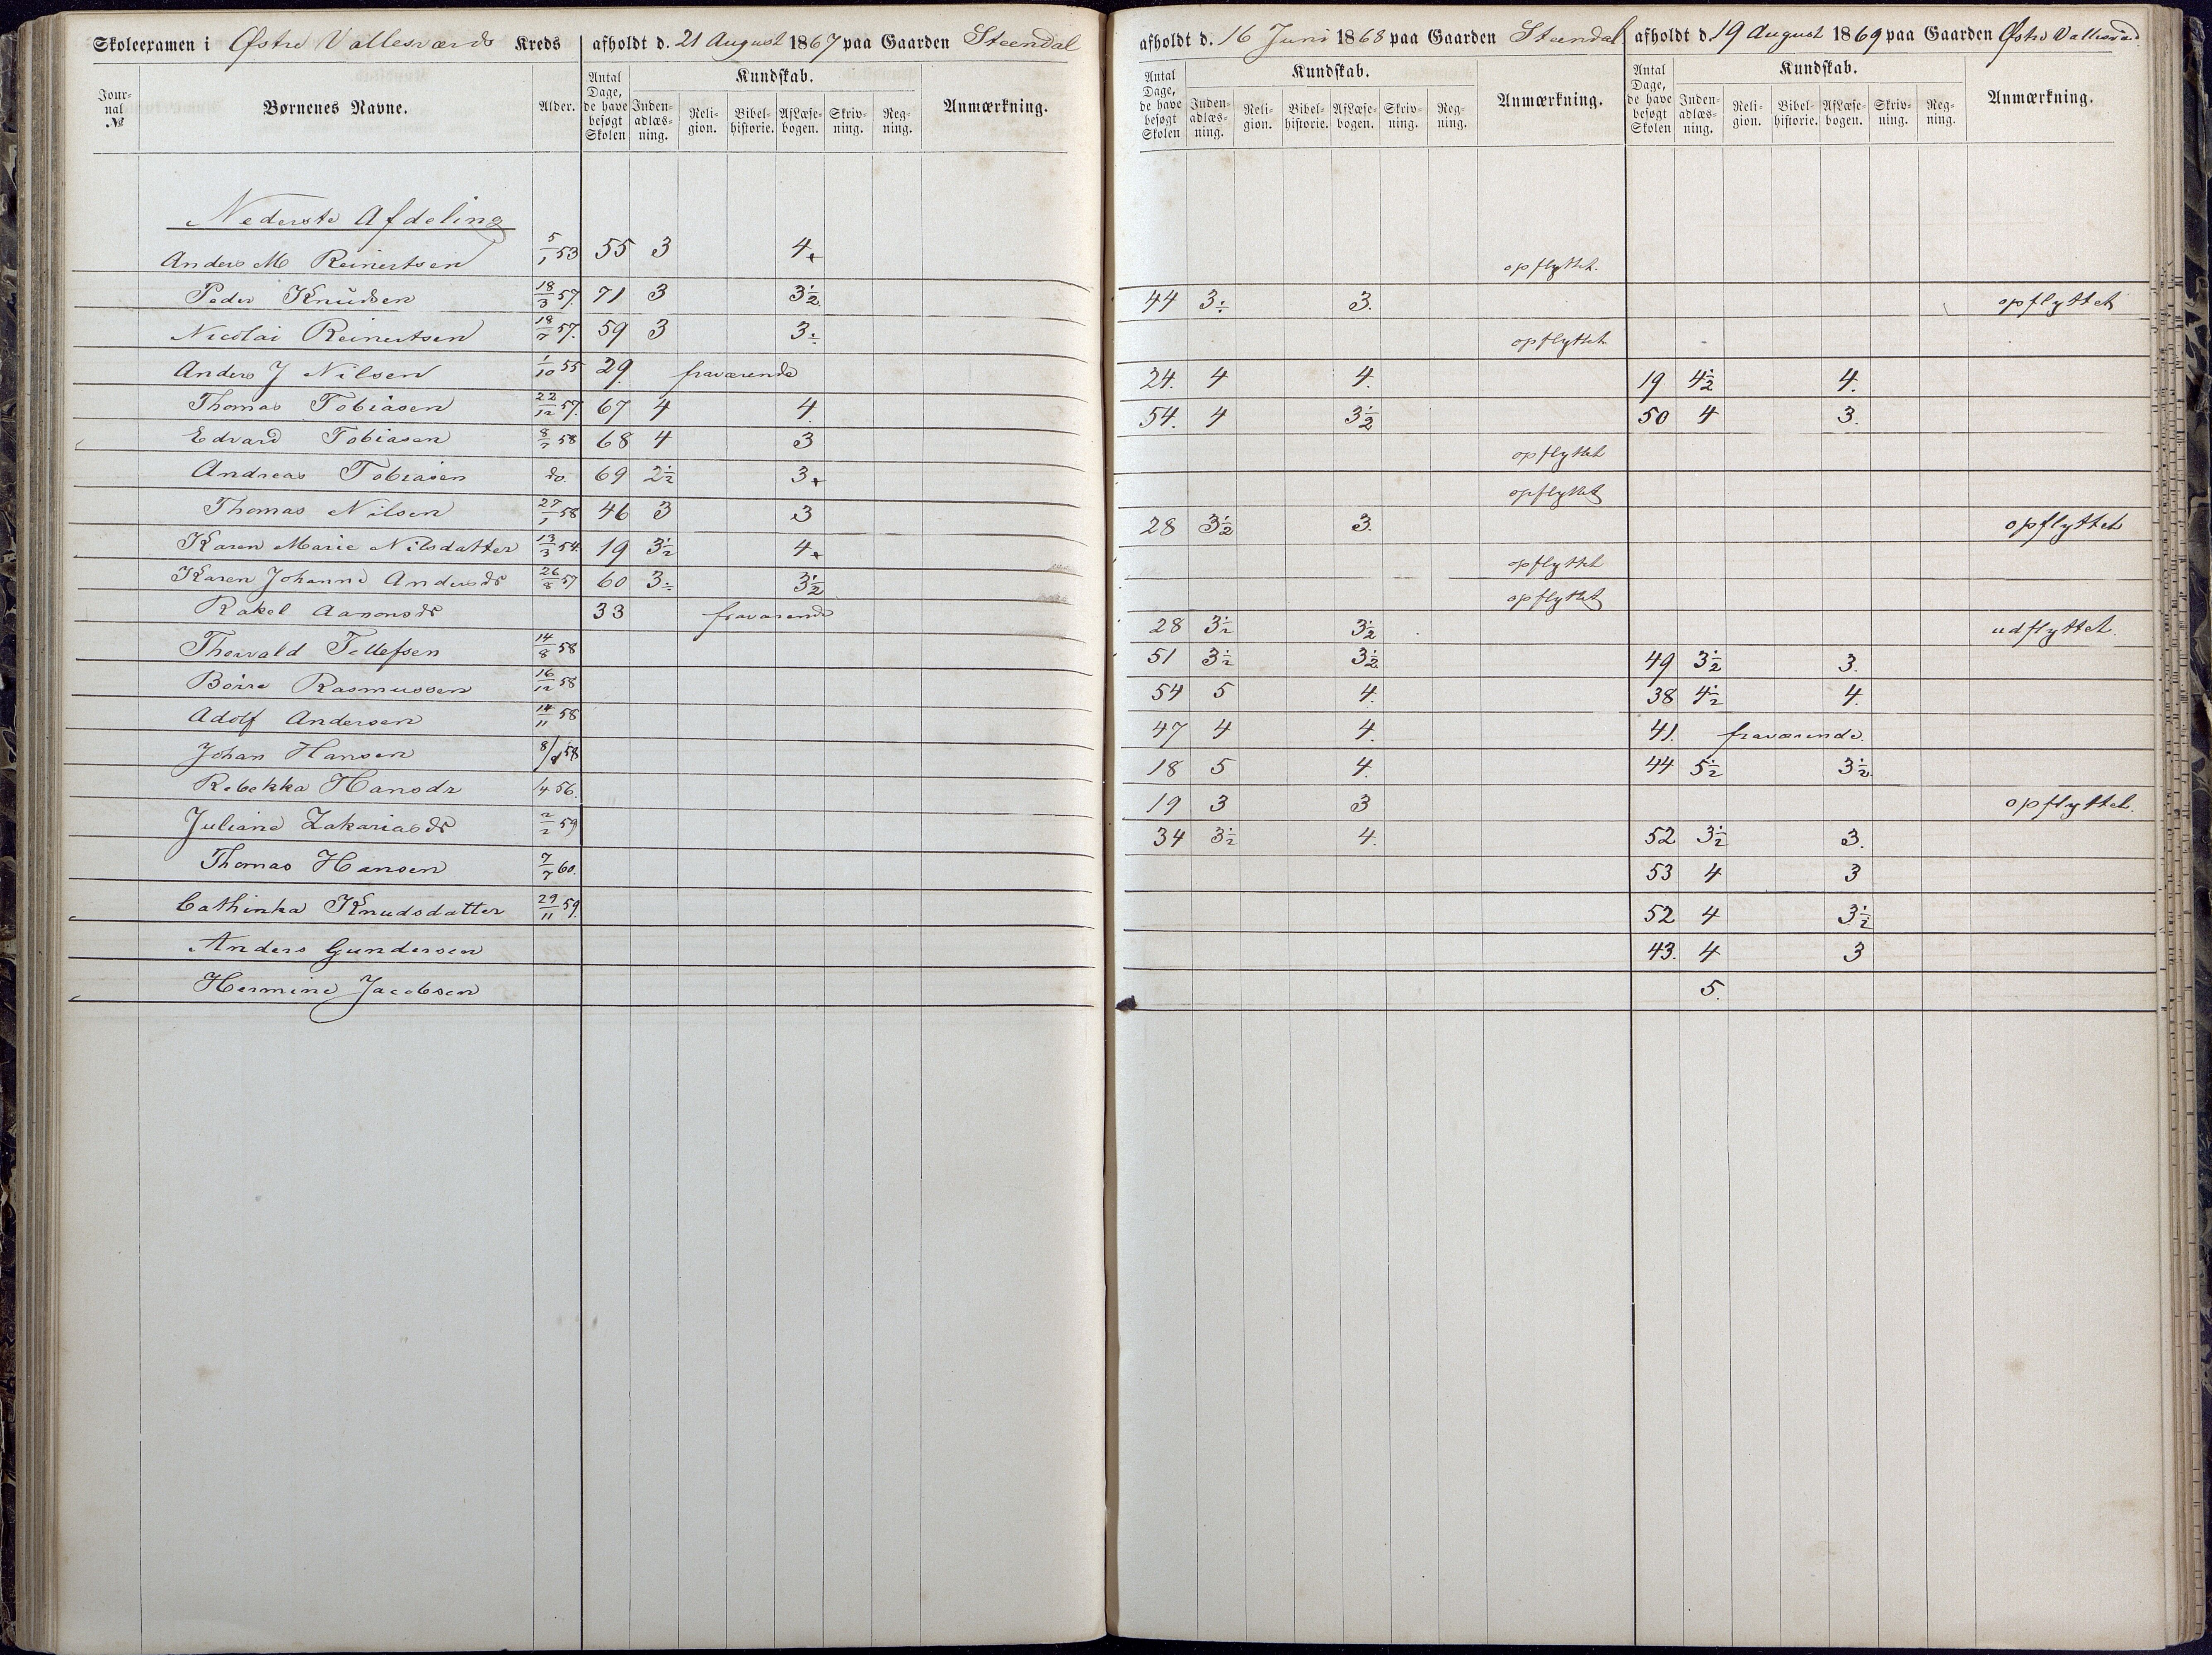 Skoleexamen i Østre Vallesværds Kreds afholdt d. 21 August 1867 paa Gaarden Steendal afholdt d. 16 Juni 1868 paa Gaarden Steendal afholdt d. 19 August 1869 paa Gaarden Østre Vallesværd
Jour-nal № Børnenes Navne. Alder. Antal Dage, de have besøgt Skolen Kundskab. Inden-adlæs-ning. Reli-gion. Bibel-historie. Af Læse-bogen. Skriv-ning. Reg-ning. Anmærkning. Antal Dage, de have besøgt Skolen Kundskab. Inden-adlæs-ning. Reli-gion. Bibel-historie. Af Læse-bogen. Skriv-ning. Reg-ning. Anmærkning. Antal Dage, de have besøgt Skolen Kundskab. Inden-adlæs-ning. Reli-gion. Bibel-historie. Af Læse-bogen. Skriv-ning. Reg-ning. Anmærkning.
Nederste Afdeling
Anders M Reinertsen 5/1 53 55 3 4+ opflyttet.
Peder Knüdsen 18/3 57. 71 3 3½ 44 3÷ 3. opflyttet
Nicolai Reinertsen 18/7 57. 59 3 3÷ opflyttet
Anders J Nilsen 1/10 55 29. fraværende 24. 4 4. 19 4½ 4.
Thomas Tobiasen 22/12 57. 67 4 4. 54. 4 3½ 50 4 3.
Edvard Tobiasen 8/7 58 68 4 3 opflyttet
Andreas Tobiasen do. 69 2½ 3+ opflyttet
Thomas Nilsen 27/1 58 46 3 3 28 3½ 3. opflyttet
Karen Marie Nilsdatter 13/3 54. 19 3½ 4+ opflyttet
Karen Johanne Andersdr 26/8 57 60 3÷ 3½ opflyttet
Rakel Aanonsdr 33 fraværende 28 3½ 3½ udflyttet.
Thorvald Tellefsen 14/8 58 51 3½ 3½ 49 3½ 3.
Börre Rasmussen 16/12 58 54 5 4. 38 4½ 4.
Adolf Andersen 14/11 58 47 4 4. 41. fraværende.
Johan Hansen 58 18 5 4. 44 5½ 3½
Rebekka Hansdr /4 56. 19 3 3 opflyttet.
Juliane Zakariasdr 2/2 59 34 3½ 4. 52 3½ 3.
Thomas Hansen 7/7 60. 53 4 3
Cathinka Knudsdatter 29/11 59. 52 4 3½
Anders Gundersen 43. 4 3
Hermine Jacobsen 5.